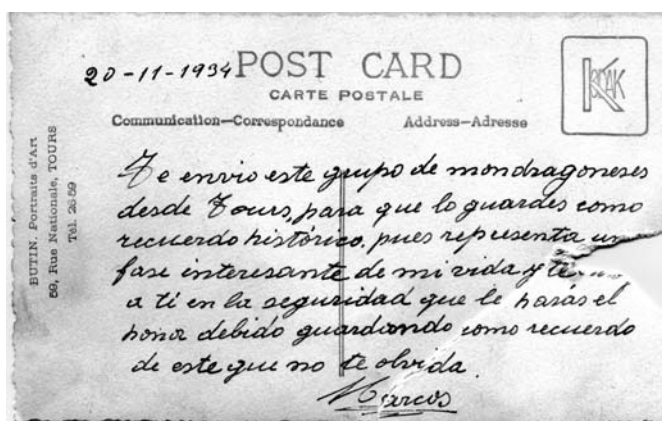 20-11-1934
POST CARD
CARTE POSTALE
Communication—Correspondance
Address—Adresse
KODAK
BUTIN. Portraits d'Art
59, Rue Nationale, TOURS
Tél. 26-59
Te envio este grupo de mondragoneses
desde Tours, para que lo guardes como
recuerdo histórico, pues representa un
fase interesante de mi vida y te
a ti en la seguridad que le haras el
honor debido guardando como recuerdo
de este que no te olvida.
Marcos